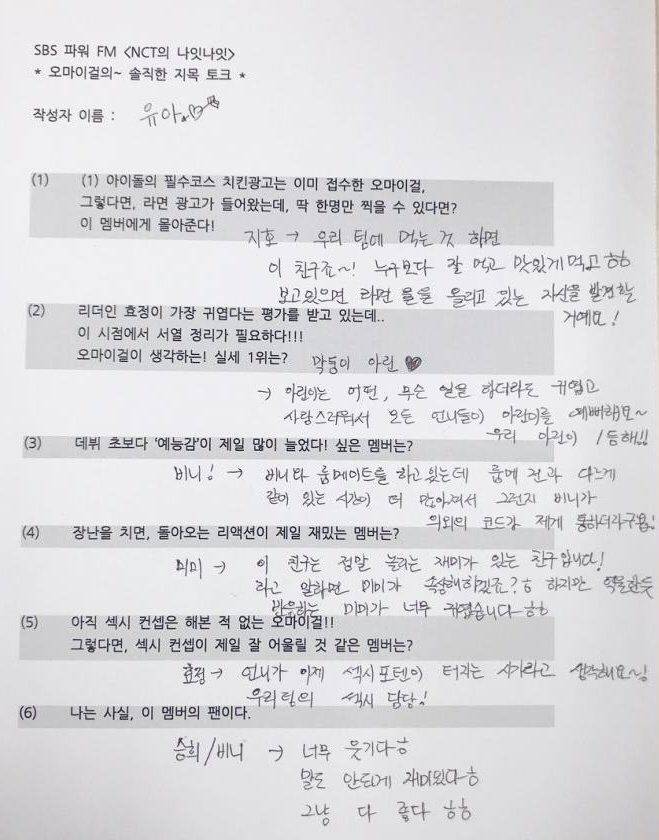 SBS 파워 FM <NCT의 나잇나잇>
* 오마이걸의~ 솔직한 지목 토크 *
작성자 이름 : 유아
(1) (1) 아이돌의 필수코스 치킨광고는 이미 접수한 오마이걸,
그렇다면, 라면 광고가 들어왔는데, 딱 한명만 찍을 수 있다면?
이 멤버에게 몰아준다!
지호 → 우리 팀에 먹는 것 하면
이 친구죠~! 누구보다 잘 먹고 맛있게 먹고 ㅎㅎ
보고있으면 라면 물을 올리고 있는 자신을 발견할
거예요!
(2) 리더인 효정이 가장 귀엽다는 평가를 받고 있는데..
이 시점에서 서열 정리가 필요하다!!!
오마이걸이 생각하는! 실세 1위는? 막둥이 아린 ♥
→ 아린이는 어떤, 무슨 일을 하더라도 귀엽고
사랑스러워서 모든 언니들이 아린이를 예뻐해요~
우리 아린이 1등해!!
(3) 데뷔 초보다 '예능감'이 제일 많이 늘었다! 싶은 멤버는?
비니! → 비니와 룸메이트를 하고있는데 룸메 전과 다르게
같이 있는 시간이 더 많아져서 그런지 비니가
의외의 코드가 제게 통하더라구용!
(4) 장난을 치면, 돌아오는 리액션이 제일 재밌는 멤버는?
미미 → 이 친구는 정말 놀리는 재미가 있는 친구입니다!
라고 말하면 미미가 속상해하겠죠?ㅎ 하지만 억울한듯
반응하는 미미가 너무 귀엽습니다ㅎㅎ
(5) 아직 섹시 컨셉은 해본 적 없는 오마이걸!!
그렇다면, 섹시 컨셉이 제일 잘 어울릴 것 같은 멤버는?
효정→ 언니가 이제 섹시포텐이 터지는 시기라고 생각해요~!
우리팀의 섹시 담당!
(6) 나는 사실, 이 멤버의 팬이다.
승희/비니 → 너무 웃기다ㅎ
말도 안되게 재미있다ㅎ
그냥 다 좋다 ㅎㅎ